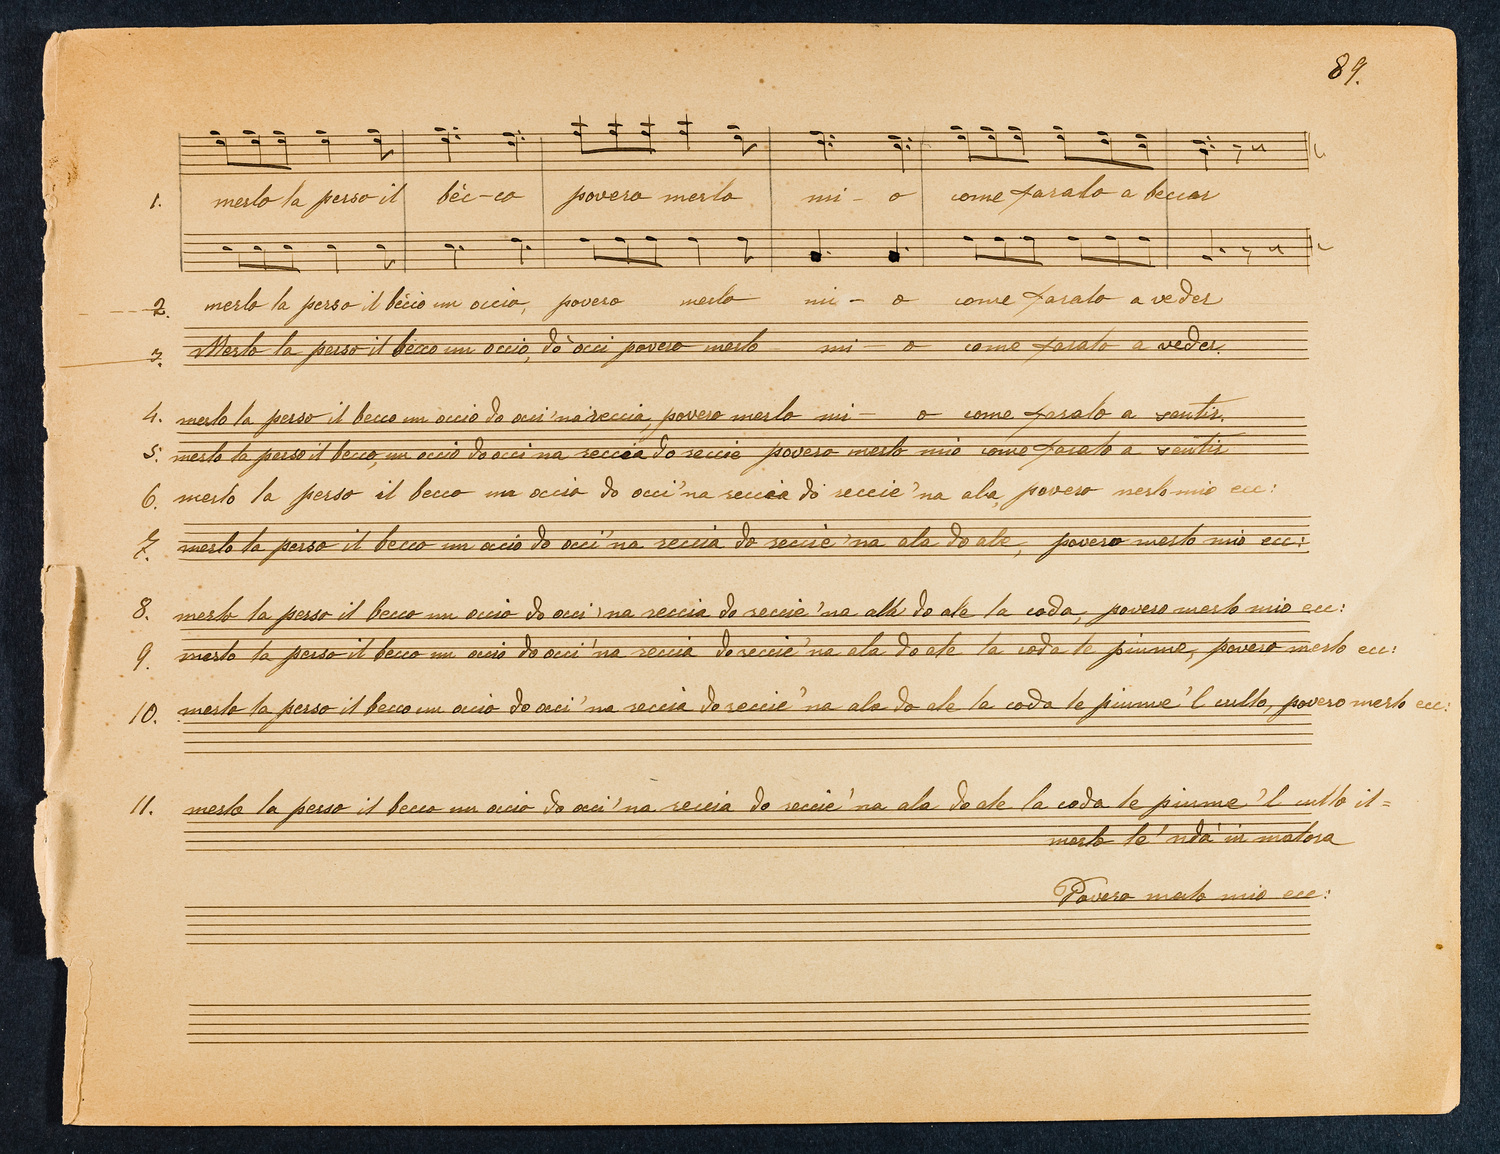 89.
1. merlo la perso il béc-co povero merlo mi - o come faralo a beccar
2. merlo la perso il bècio un occio, povero merlo mi - o come faralo a veder
3. Merlo la perso il becco un occio, dò occi povero merlo mi - o come faralo a veder.
4. merlo la perso il becco un occio do occi 'na reccia, povero merlo mi - o come faralo a sentir.
5. merlo la perso il becco, un occio do occi na reccea do reccie povero merlo mio come faralo a sentir
6. merlo la perso il becco un occio do occi 'na reccia dò reccie 'na ala, povero merlo mio ecc:
7. merlo la perso il becco un occio do occi 'na reccia do reccie 'na ala do ale, povero merlo mio ecc:
8. merlo la perso il becco un occio do occi 'na reccia do reccie 'na alla do ale la coda, povero merlo mio ecc:
9. merlo la perso il becco un occio do occi 'na reccia do reccie 'na ala do ale la coda le piume, povero merlo ecc:
10. merlo la perso il becco un occio do occi 'na reccia do reccie 'na ala do ale la coda le piume 'l cullo, povero merlo ecc:
11. merlo la perso il becco un occio do occi 'na reccia do reccie 'na ala do ale la coda le piume 'l cullo il=
merlo le 'nda' in malora
Povero merlo mio ecc: